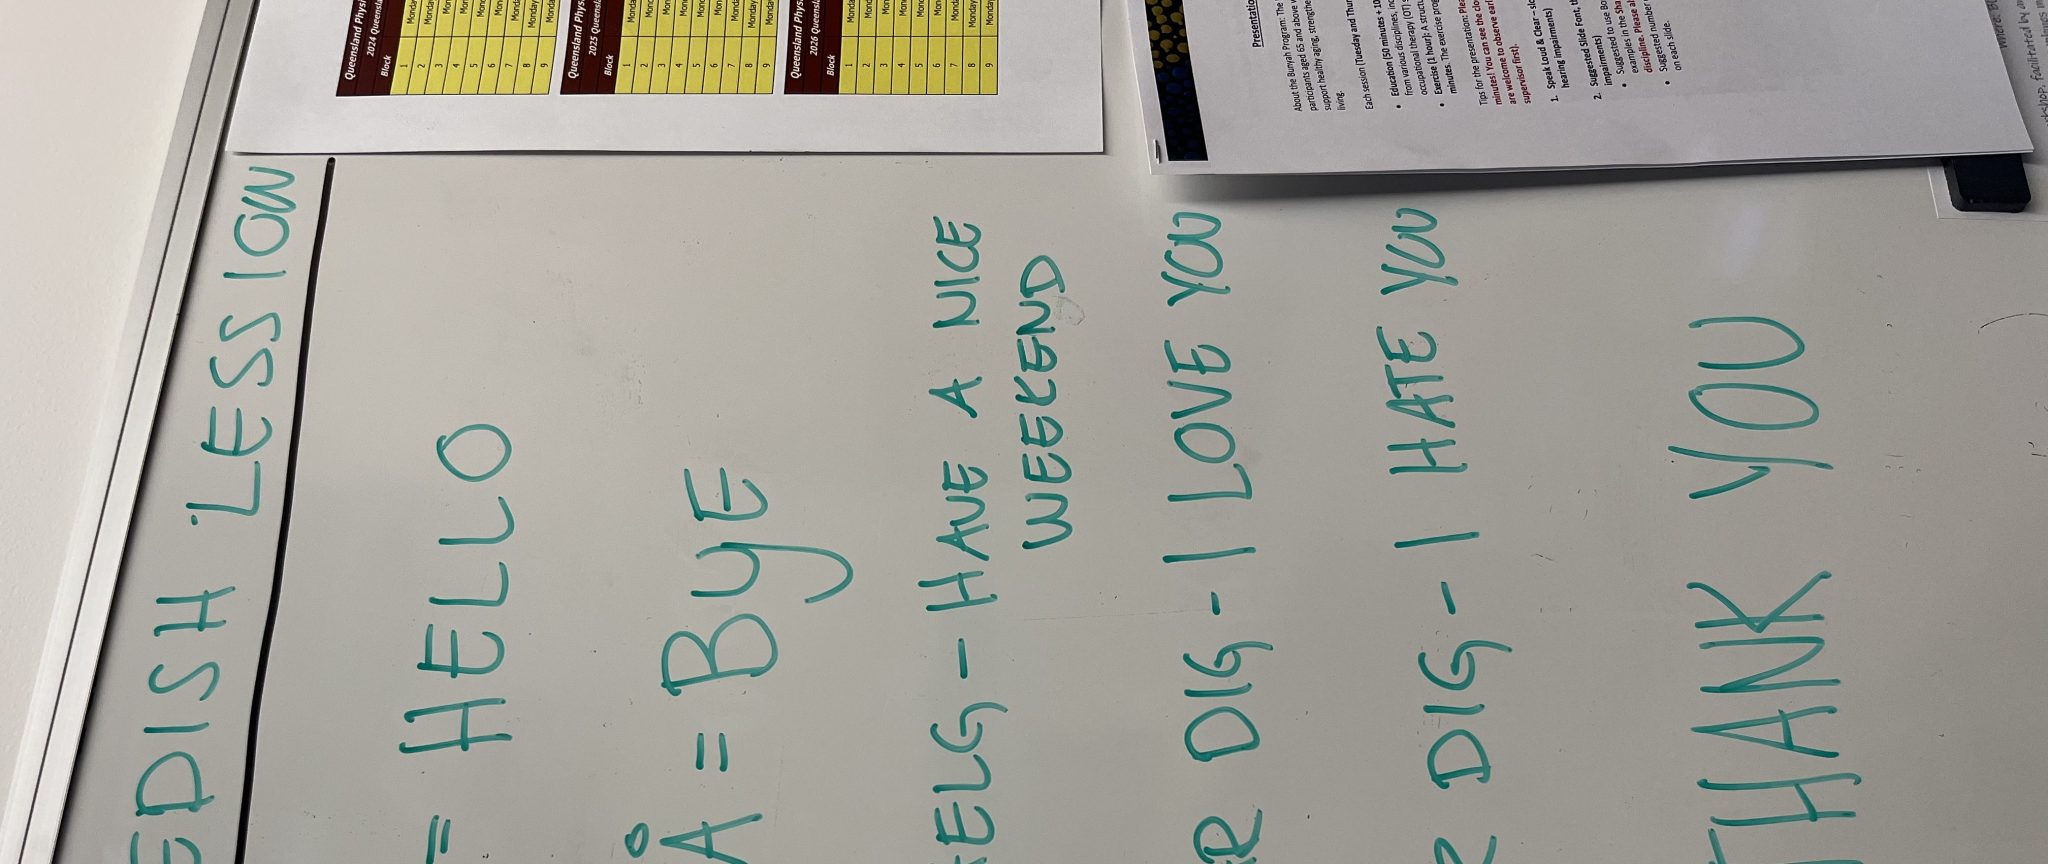 EDISH LESSION
= HELLO
Å = BYE
ELG - HAVE A NICE
WEEKEND
R DIG - I LOVE YOU
DIG - I HATE YOU
THANK YOU
Queensland Phys
2024 Queensla
Block
1 Monda
2 Monda
3 Mon
4 Mon
5 Mon
6 Mon
7 Mond
8 Monday
9 Monda
Queensland Phys
2025 Queensl
Block
1 Monda
2 Mond
3 Mon
4 Mon
5 Mon
6 Mon
7 Mond
8 Monday
9 Monda
Queensland Phys
2026 Queensl
Block
1 Monda
2 Mond
3 Mon
4 Mon
5 Mon
6 Mon
7 Mon
8 Monday
9 Monday
Presentatio
About the Bunyah Program: The
participants aged 65 and above w
support healthy aging, strengthe
living.
Each session (Tuesday and Thur
• Education (50 minutes + 10
from various disciplines, inc
occupational therapy (OT)
• Exercise (1 hour): A structu
minutes. The exercise pro
Tips for the presentation: Plea
minutes! You can see the clo
are welcome to observe earl
supervisor first).
1. Speak Loud & Clear – slo
hearing impairments)
2. Suggested Slide Font,
impairments)
• Suggested to use Bo
• examples in the Sha
examples. Please al
discipline.
• Suggested number
on each slide.
Facilitated by